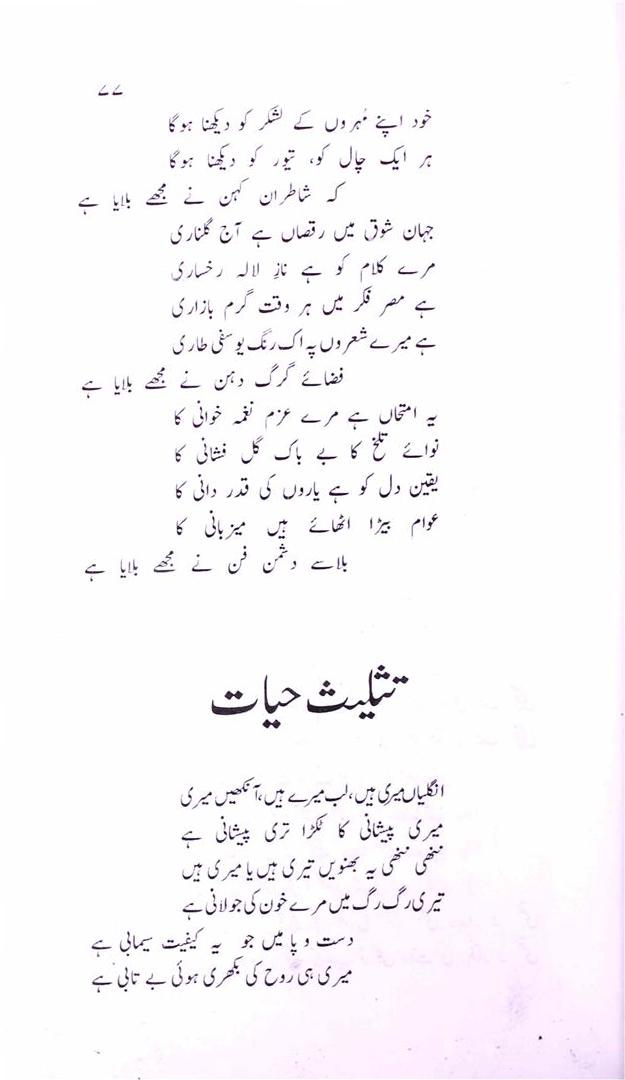 ۷۷
خود اپنے مُہروں کے لشکر کو دیکھنا ہوگا
ہر ایک چال کو، تیور کو دیکھنا ہوگا
کہ شاطران کہن نے مجھے بلایا ہے
جہان شوق میں رقصاں ہے آج گلناری
مرے کلام کو ہے ناز لالہ رخساری
ہے مصر فکر میں ہر وقت گرم بازاری
ہے میرے شعروں پہ اک رنگ یوسفی طاری
فضائے گرگ دہن نے مجھے بلایا ہے
یہ امتحاں ہے مرے عزم نغمہ خوانی کا
نوائے تلخ کا بے باک گل فشانی کا
یقین دل کو ہے یاروں کی قدر دانی کا
عوام بیڑا اٹھائے ہیں میزبانی کا
بلاسے دشمن فن نے مجھے بلایا ہے
تثلیث حیات
انگلیاں میری ہیں، لب میرے ہیں، آنکھیں میری
میری پیشانی کا ٹکڑا تری پیشانی ہے
ننھی ننھی یہ بھنویں تیری ہیں یا میری ہیں
تیری رگ رگ میں مرے خون کی جولانی ہے
دست و پا میں جو یہ کیفیت سیمابی ہے
میری ہی روح کی بکھری ہوئی بے تابی ہے